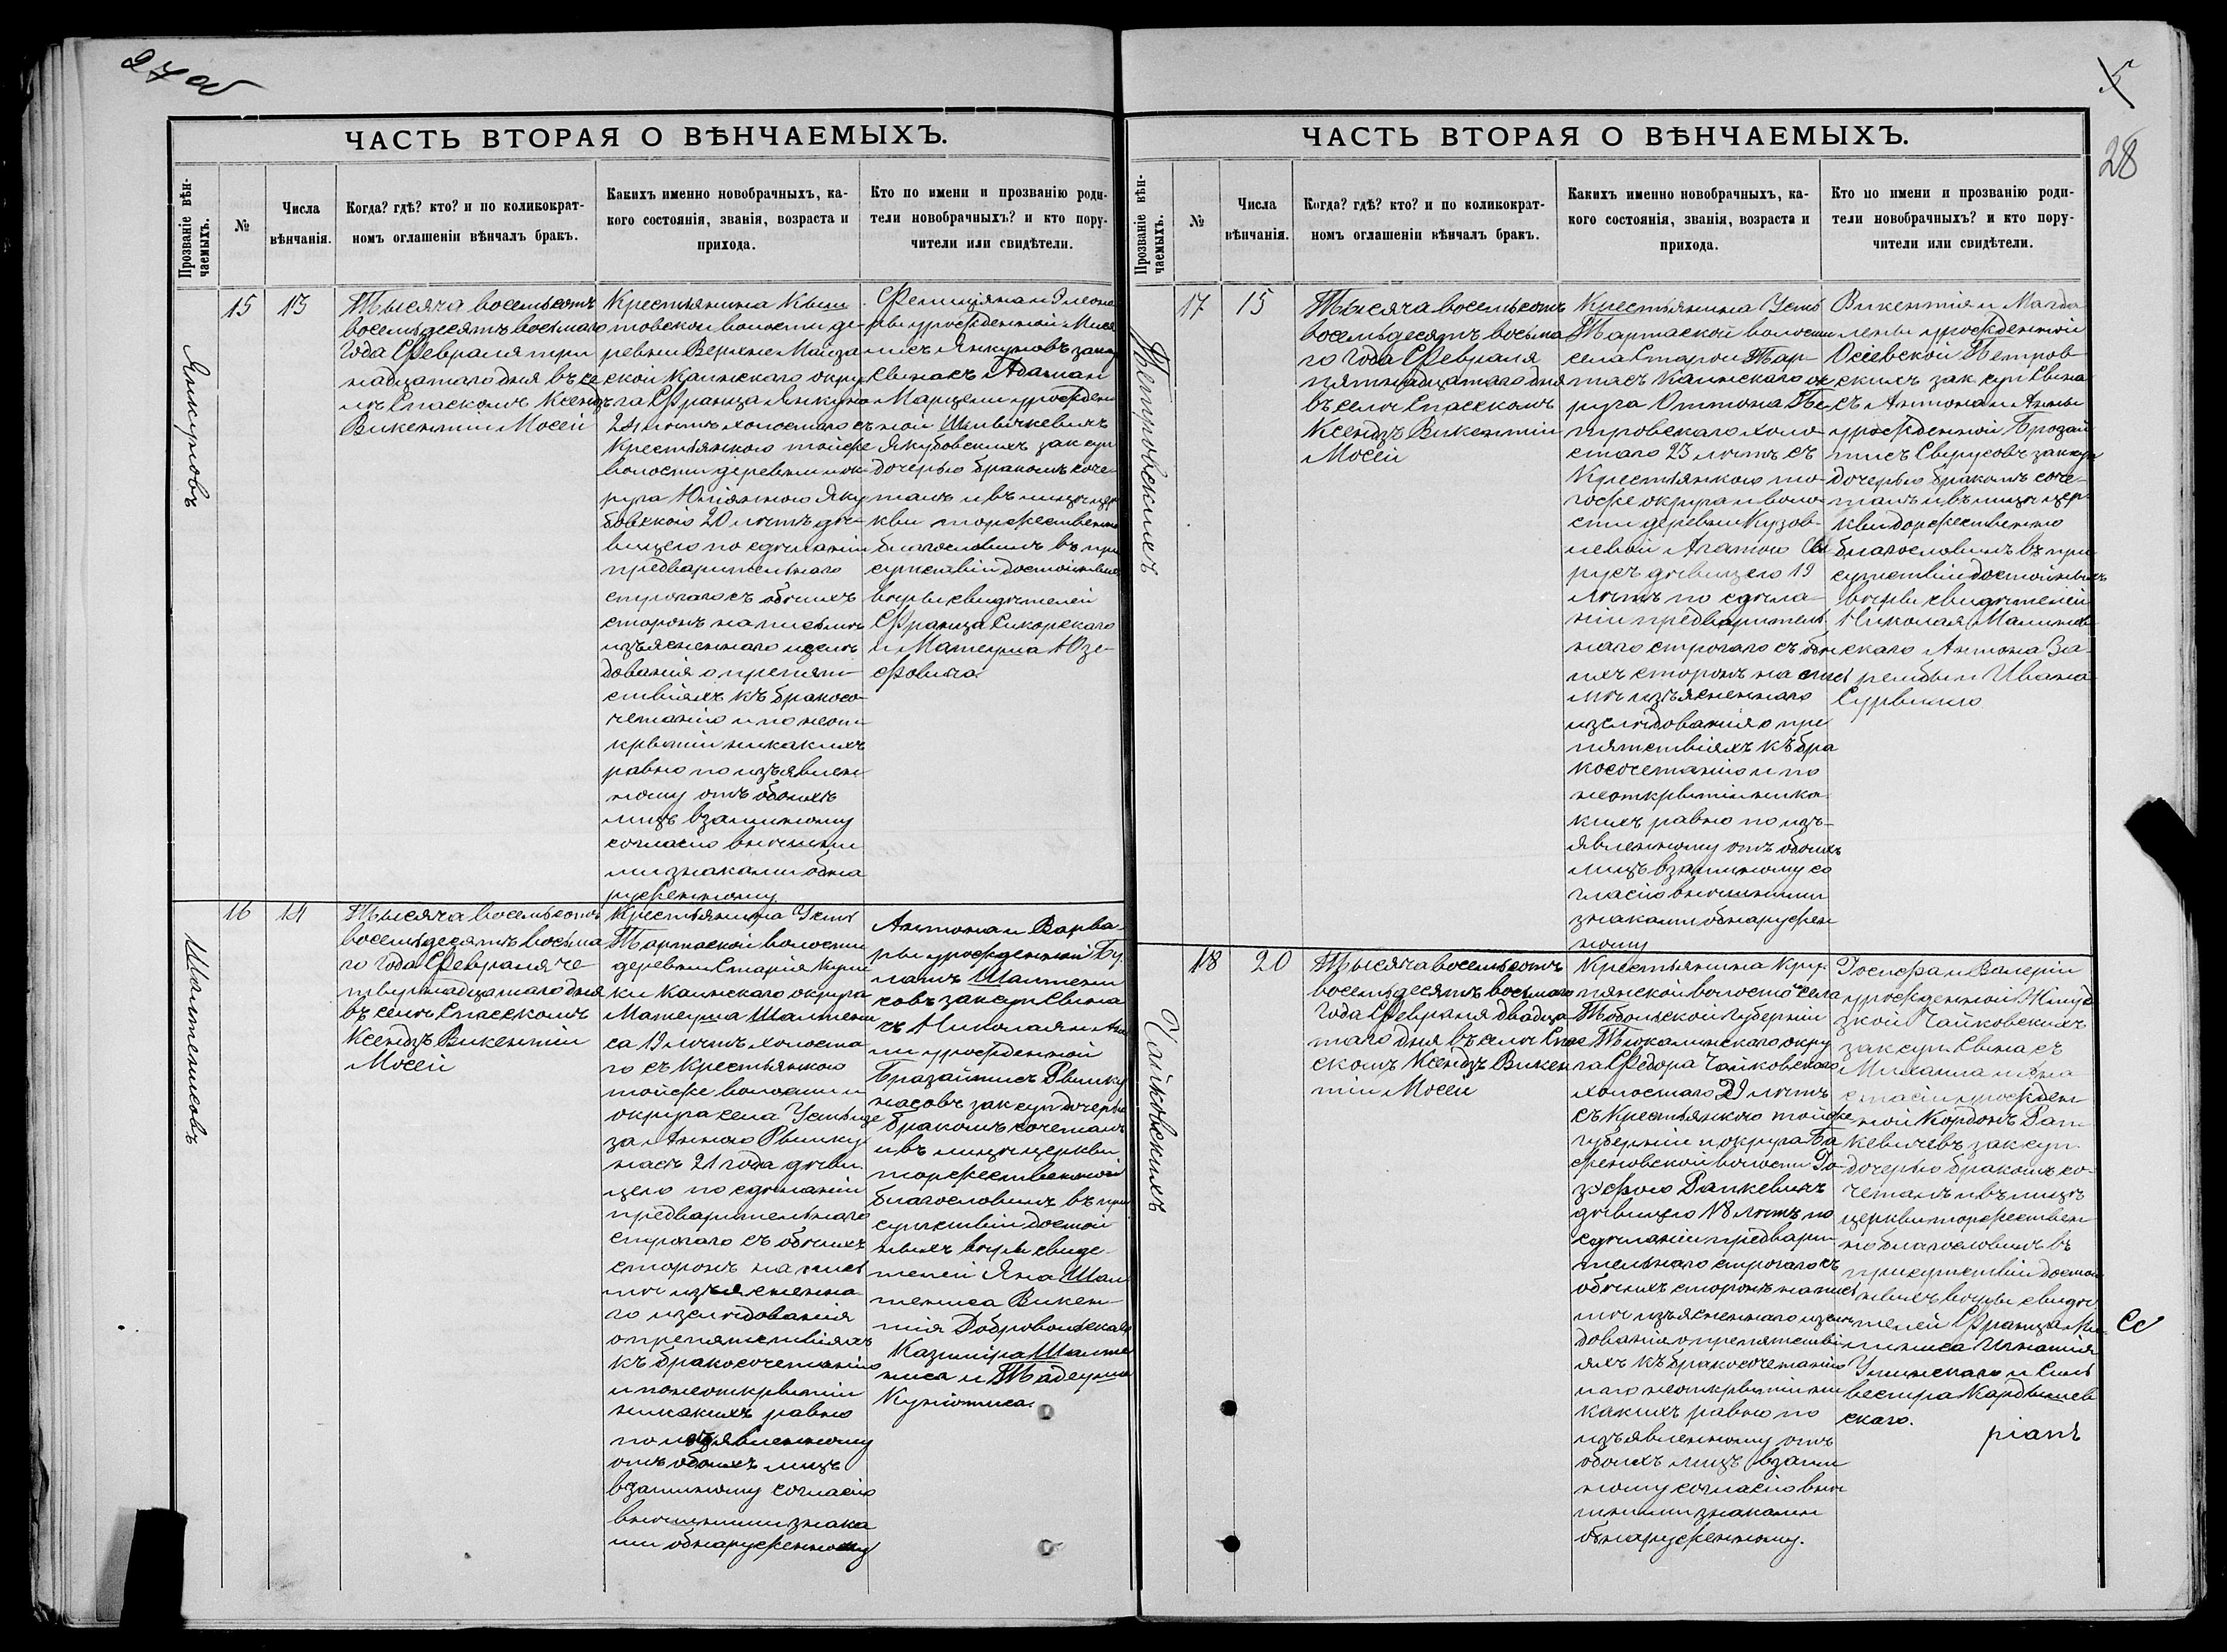 27 об
ЧАСТЬ ВТОРАЯ О ВѢНЧАЕМЫХЪ.
Прозваніе вѣн-
чаемыхъ.
№
Числа
вѣнчанія.
Когда? гдѣ? кто? и по коликократ-
номъ оглашеніи вѣнчалъ бракъ.
Какихъ именно новобрачныхъ, ка-
кого состоянія, званія, возраста и
прихода.
Кто по имени и прозванію роди-
тели новобрачныхъ? и кто пору-
чители или свидѣтели.
Янкуновъ
15
13
Тысяча восемьсотъ
восемьдесятъ восьмаго
года Февраля три
надцатаго дня въ се
лѣ Спаскомъ Ксендзъ
Викентій Мосей
Крестьянина Кыш
товской волости де-
ревни Верхне Майза
ской Каинскаго окру
га Франца Янкуно
24 лѣтъ холостаго съ
Крестьянкою тойже
волости деревни и ок-
руга Юліянною Яку
бовскою 20 лѣтъ дѣ-
вицею по сдѣланіи
предварительнаго
строгаго съ обѣихъ
сторонъ на письмѣ
изъясненнаго изслѣ
дованія о препят-
ствіяхъ къ бракосо-
четанію и по неот
крытіи никакихъ
равно по изъявлен
ному отъ обоихъ
лицъ взаимному
согласію внѣшни
ми знаками обна
руженному
Фелиціяна и Элеоно
ры урожденной
Янкуновъ зак
Сына съ Адама и
Марцели урожден
ной Шлычкевичъ
Якубовскихъ зак суп
дочерью бракомъ соче
талъ и въ лицѣ цер
кви торжественно
благословилъ въ при
сутствіи достойныхъ
вѣры свидѣтелей
Франца Сикорскаго
и Матеуша Юзе-
фовича
Шалтенисовъ
16
14
Тысяча восемьсотъ
восемьдесятъ восьма
го года Февраля че
твернадцатаго дня
въ селѣ Спасскомъ
Ксендзъ Викентій
Мосей
Крестьянина Усть
Тартаской волости
деревни Старіе Кули
ки Каинскаго округа
Матеуша Шалтени
са 19 лѣтъ холоста
го съ Крестьянкою
тойже волости и
округа села Устьице
за Анною Рвинку
насъ 21 года дѣви
цею по сдѣланіи
предварительнаго
строгаго съ обѣихъ
сторонъ на пись
мѣ изъясненна
го изслѣдованія
о препятствіяхъ
къ бракосочетанію
и по неоткрытіи
никакихъ равно
по изъявленному
отъ обоихъ лицъ
взаимному согласію
внѣшними знака
ми обнаруженному
Антона и Варва-
ры урожденной Бу
латъ Шалтени
совъ зак суп Сына
съ Николая и Ан
ны урожденной
Бразайтисъ Рвинку
насовъ зак суп дочерью
бракомъ сочеталъ
и въ лицѣ церкви
торжественной
благословилъ въ при
сутствіи достой
ныхъ вѣры свидѣ-
телей Яна Шал
тениса Викен-
тія Добровольскаго
Казимира Шалте
ниса и Тадеуша
5
28
ЧАСТЬ ВТОРАЯ О ВѢНЧАЕМЫХЪ.
Прозваніе вѣн-
чаемыхъ.
№
Числа
вѣнчанія.
Когда? гдѣ? кто? и по коликократ-
номъ оглашеніи вѣнчалъ бракъ.
Какихъ именно новобрачныхъ, ка-
кого состоянія, званія, возраста и
прихода.
Кто по имени и прозванію роди-
тели новобрачныхъ? и кто пору-
чители или свидѣтели.
Петровскихъ
17
15
Тысяча восемьсотъ
восемьдесятъ восьма
го года Февраля
пятнадцатаго дня
въ селѣ Спасскомъ
Ксендзъ Викентій
Мосей
Крестьянина Усть
Тартаской волости
села Старой Тар-
тасъ Каинскаго ок
руга Оттона Пе-
тровскаго холо-
стаго 23 лѣтъ съ
Крестьянкою то-
гоже округа и воло-
сти деревни Кузов-
левой Агатою Сви
русъ дѣвицею 19
лѣтъ по сдѣла-
ніи предваритель
наго строгаго съ обѣ
ихъ сторонъ на пись
мѣ изъясненнаго
изслѣдованія о пре
пятствіяхъ къ бра
косочетанію и по
неоткрытіи ника
кихъ равно по изъ-
явленному отъ обоихъ
лицъ взаимному со
гласію внѣшними
знаками обнаружен
ному
Викентія и Магда
лены урожденной
Осіевской Петров-
скихъ зак суп Сына
съ Антона и Анны
урожденной Брозай
тисъ Свирусовъ зак суп
дочерью бракомъ соче-
талъ и въ лицѣ цер-
кви торжественно
благословилъ въ при
сутствіи достойныхъ
вѣры свидѣтелей
Николая Малинов
скаго Антона За-
рембы и Ивана
Чайковскихъ
18
20
Тысяча восемьсотъ
восемьдесятъ восьмаго
года Февраля двадца
таго дня въ селѣ Спас
скомъ Ксендзъ Викен
тій Мосей
Крестьянина Кру-
пянской волости села
Тобольской губерніи
Тюкалинскаго окру
га Федора Чайковскаго
холостаго 29 лѣтъ
съ Крестьянкою тойже
губерніи и округа Ба
женовской волости Іо-
зефою Рапкевичъ
дѣвицею 18 лѣтъ по
сдѣланіи предвари-
тельнаго строгаго съ
обѣихъ сторонъ на пись
мѣ изъясненнаго изслѣ
дованія о препятстві
яхъ къ бракосочетанію
и по неоткрытіи ни
какихъ равно по
изъявленному отъ
обоихъ лицъ взаим
ному согласію внѣ
шними знаками
обнаруженному.
Госифа и Валеріи
урожденной Жмуд
зкой Чайковскихъ
зак суп Сына съ
Михаила и Ана
стасіи урожден
ной Кордонъ Рап
кевичевъ зак суп
дочерью бракомъ со-
четалъ и въ лицѣ
церкви торжествен
но благословилъ въ
присутствіи достой
ныхъ вѣры свидѣ
телей Франца
Игнатія
и Силь
вестра Кардышев
скаго.